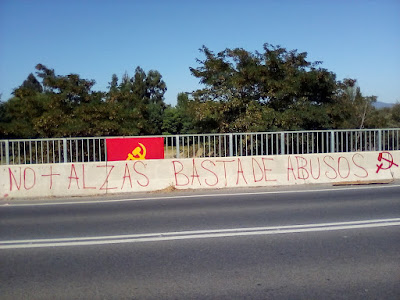 NO + ALZAS BASTA DE ABUSOS